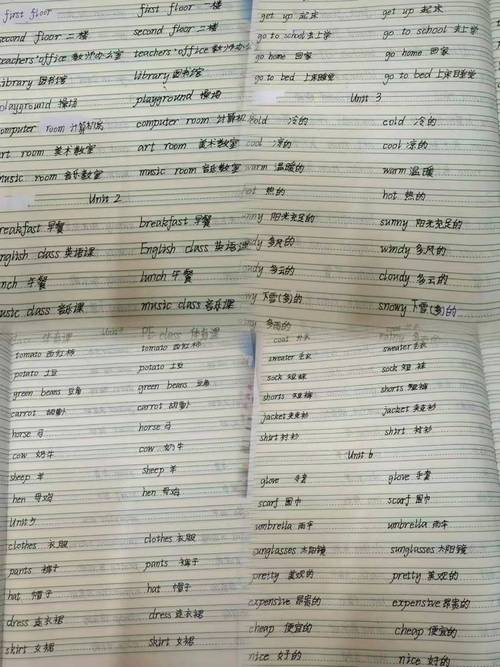 first floor first floor 一楼
second floor 二楼 second floor 二楼
teachers' office 教师办公室 teachers' office 教师办公
library 图书馆 library 图书馆
playground 操场 playground 操场
computer room 计算机房 computer room 计算机
art room 美术教室 art room 美术教室
music room 音乐教室 music room 音乐教室
Unit 2
breakfast 早餐 breakfast 早餐
English class 英语课 English class 英语课
lunch 午餐 lunch 午餐
music class 音乐课 music class 音乐课
get up 起床 get up 起床
go to school 去上学 go to school 去上学
go home 回家 go home 回家
go to bed 上床睡觉 go to bed 上床睡觉
Unit 3
cold 冷的 cold 冷的
cool 凉的 cool 凉的
warm 温暖的 warm 温暖
hot 热的 hot 热的
nny 阳光充足的 sunny 阳光充足的
dy 多风的 windy 多风的
dy 多云的 cloudy 多云的
wy 下雪(多)的 snowy 下雪(多)的
class 体育课 PE class 体育课
tomato 西红柿 tomato 西红柿
potato 土豆 potato 土豆
green beans 豆角 green beans 豆角
carrot 胡萝卜 carrot 胡萝卜
horse 马 horse 马
cow 奶牛 cow 奶牛
sheep 羊 sheep 羊
hen 母鸡 hen 母鸡
Unit 5
clothes 衣服 clothes 衣服
pants 裤子 pants 裤子
hat 帽子 hat 帽子
dress 连衣裙 dress 连衣裙
skirt 女裙 skirt 女裙
多雨的
coat 外衣
sweater 毛衣 sweater 毛衣
sock 短袜 sock 短袜
shorts 短裤 shorts 短裤
jacket 夹克衫 jacket 夹克衫
shirt 衬衫 shirt 衬衫
Unit 6
glove 手套 glove 手套
scarf 围巾 scarf 围巾
umbrella 雨伞 umbrella 雨伞
sunglasses 太阳镜 sunglasses 太阳镜
pretty 美观的 pretty 美观的
expensive 昂贵的 expensive 昂贵的
cheap 便宜的 cheap 便宜的
nice 好的 nice 好的